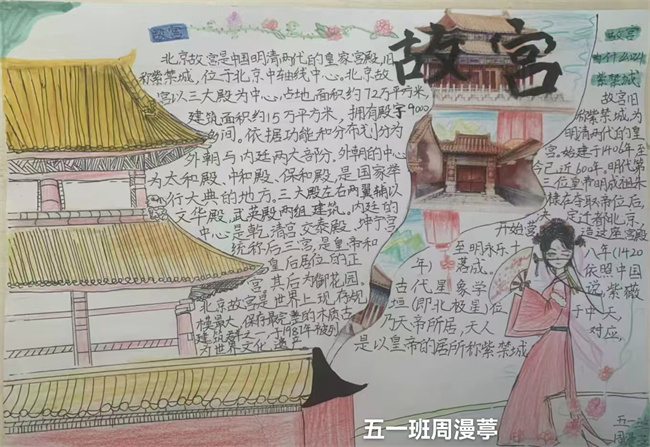 故宫
故宫
北京故宫是中国明清两代的皇家宫殿,旧
称紫禁城,位于北京中轴线中心。北京故
宫以三大殿为中心,占地面积约72万平方米,
建筑面积约15万平方米,拥有殿宇9000
多间。依据功能和分布划分为
外朝与内廷两大部分。外朝的中心
为太和殿、中和殿、保和殿,是国家举
行大典的地方。三大殿左右两翼辅以
文华殿、武英殿两组建筑。内廷的
中心是乾清宫、交泰殿、坤宁宫
统称后三宫,是皇帝和
皇后居住的正
宫,其后为御花园。
北京故宫是世界上现存规
模最大,保存最完整的木质古
建筑群之一,于1987年被列
为世界文化遗产
故宫
为什么叫
紫禁城
故宫旧
称紫禁城,为
明清两代的皇
宫。始建于1406年至
今已近600年。明代第
三位皇帝明成祖朱
棣在夺取帝位后,
决定迁都北京,
开始营造这座宫殿
至明永乐十八年(1420
年)落成。依照中国
古代星象学说,紫微
垣(即北极星)位于中天,
乃天帝所居,天人对应,
是以皇帝的居所称紫禁城
五一班周漫葶